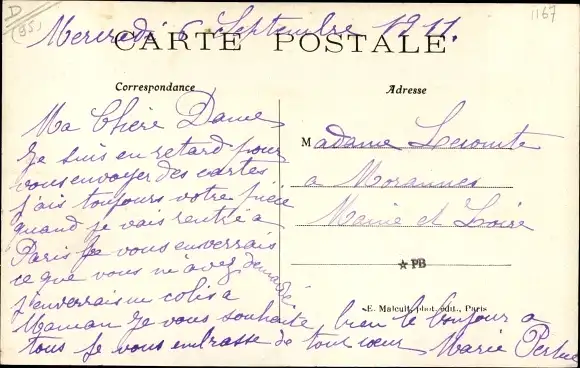 D
(95)
1167
Mercredi 6 Septembre 1911.
CARTE POSTALE
Correspondance
Ma Chère Dame
Je suis en retard pour
vous envoyer des cartes
j'ais toujours votre pièce
quand je vais rentré a
Paris Je vous enverrais
ce que vous m'avez demandé
j'enverrais un colis a
Maman Je vous souhaite bien le bonjour a
tous Je vous embrasse de tout cœur Marie
Adresse
Madame Lecomte
a Morannes
Maine et Loire
PB
E. Malcuit, phot. édit., Paris